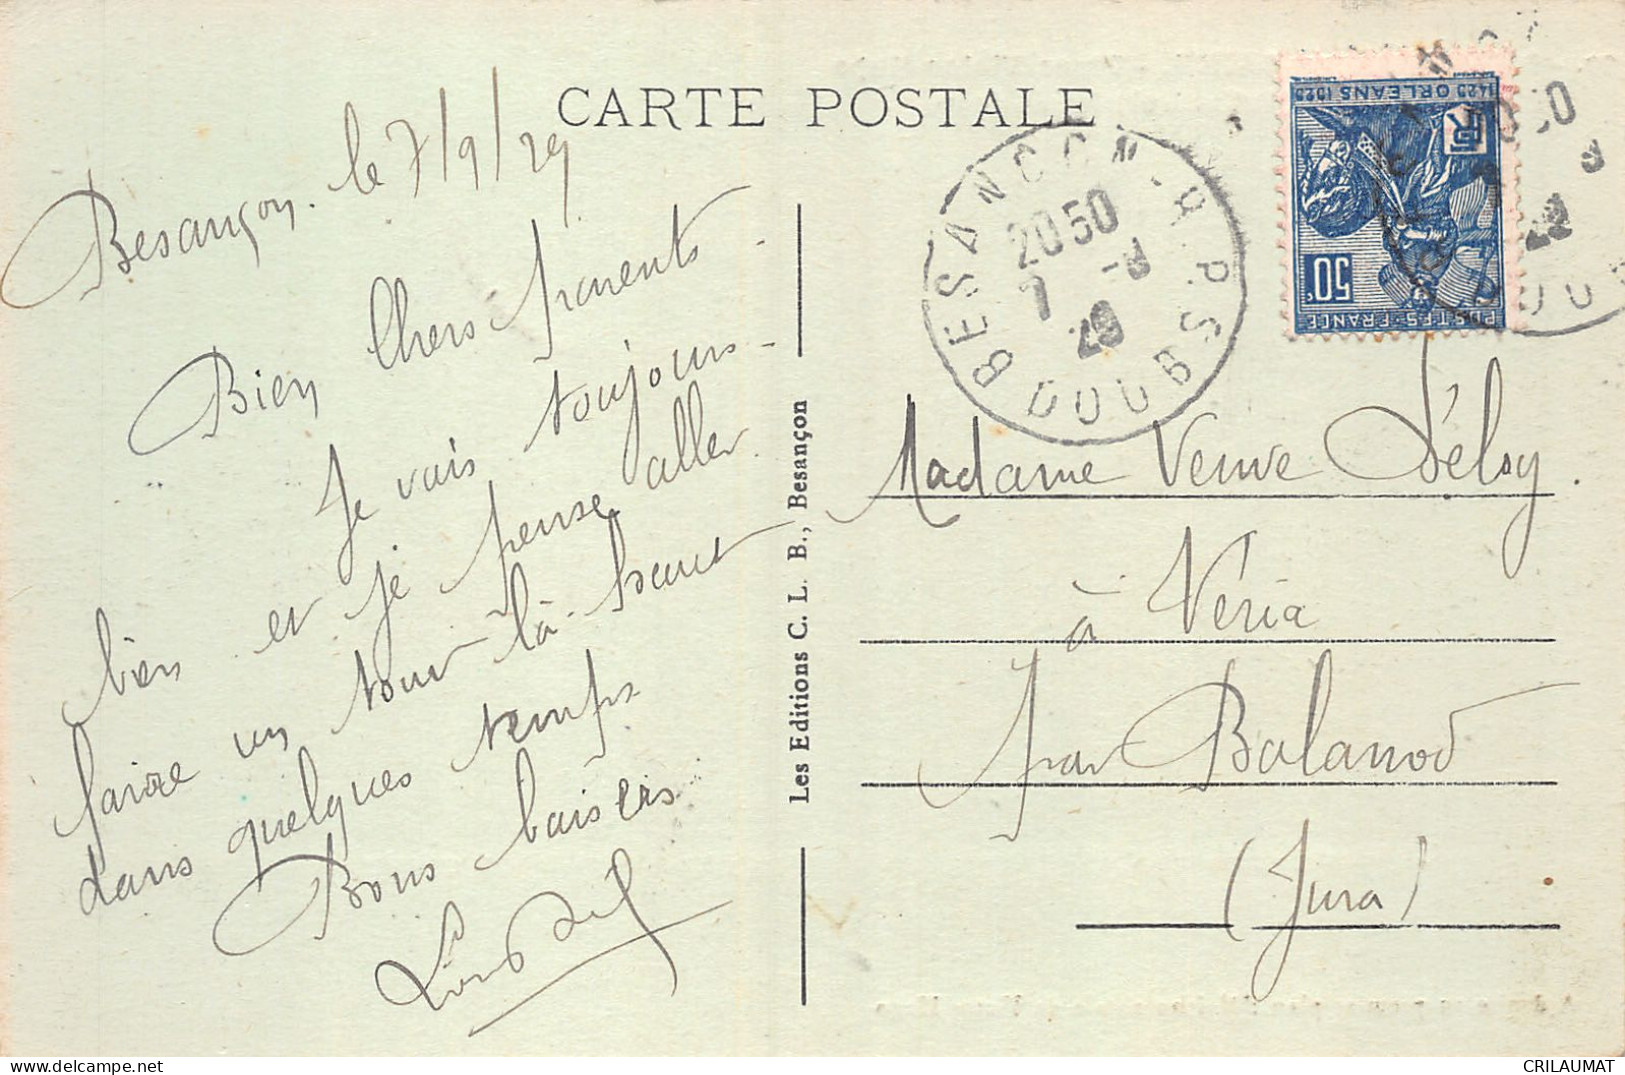 CARTE POSTALE
Besançon. le 7/9/29
Bien Chers parents.
Je vais toujours
bien et je pense aller
faire un tour là-haut
dans quelques temps
Bons baisers
Les Editions C. L. B., Besançon
BESANCON R.P.
20 50
7 -9
29
DOUBS
1429 ORLEANS 1929
RF
50c
POSTES-FRANCE
Madame Veuve Déloy.
à Véria
par Balanod
(Jura)
CRILAUMAT